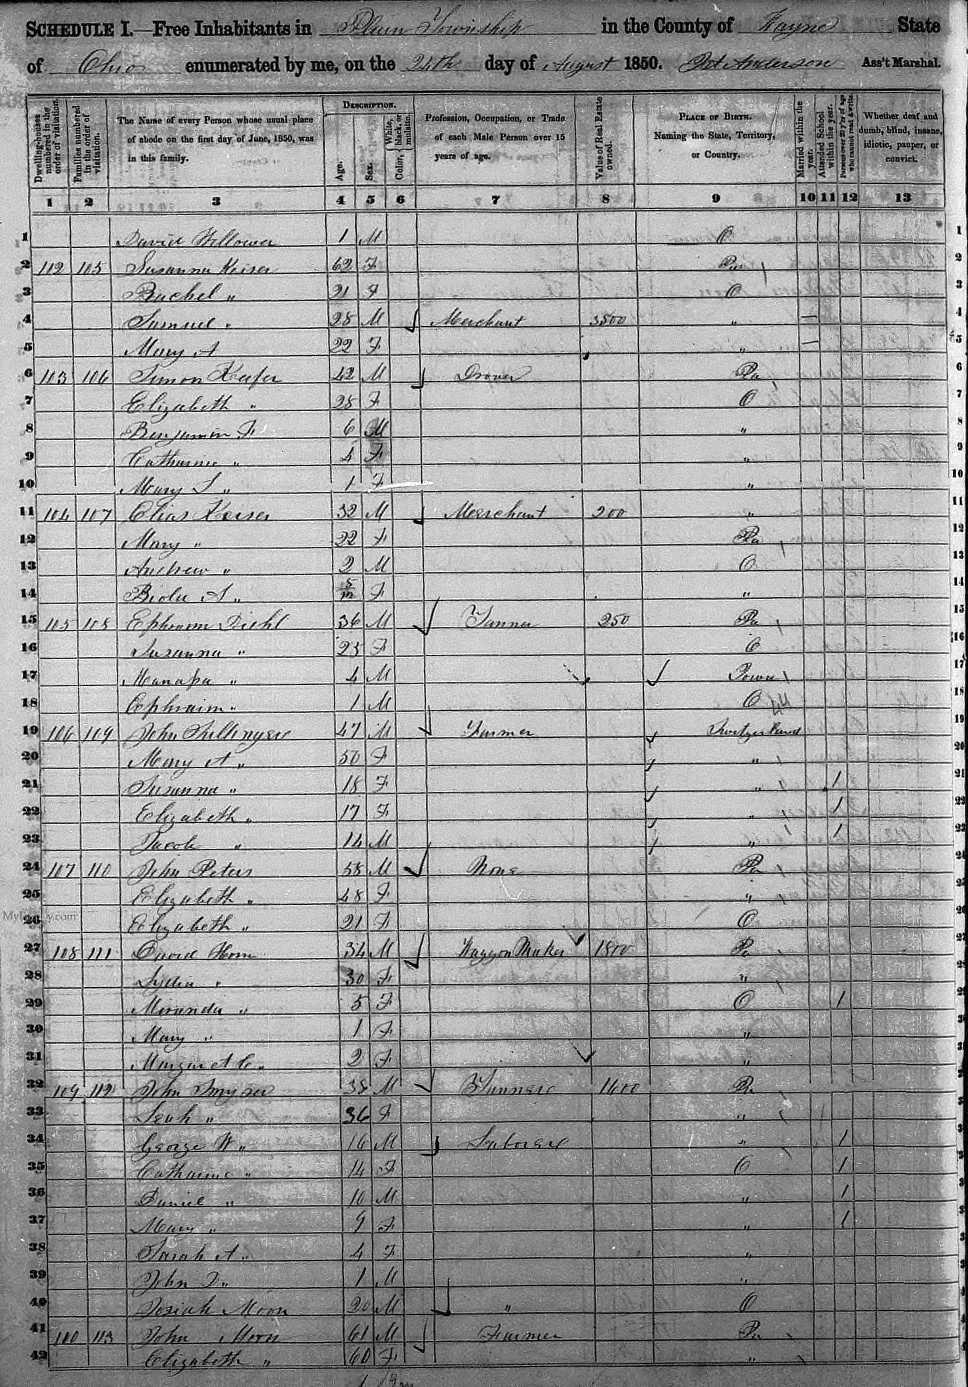 SCHEDULE I.—Free Inhabitants in Plain Township in the County of Wayne State
of Ohio enumerated by me, on the 24th day of August 1850. Anderson Ass't Marshal.
Dwelling-houses numbered in the order of visitation.
Families numbered in the order of visitation.
The Name of every Person whose usual place of abode on the first day of June, 1850, was in this family.
DESCRIPTION.
Age.
Sex.
Color, White, black, or mulatto.
Profession, Occupation, or Trade of each Male Person over 15 years of age.
Value of Real Estate owned.
PLACE OF BIRTH. Naming the State, Territory, or Country.
Married within the year.
Attended School within the year.
Persons over 20 y'rs of age who cannot read & write.
Whether deaf and dumb, blind, insane, idiotic, pauper, or convict.
1 2 3 4 5 6 7 8 9 10 11 12 13
1 David 1 M O 1
2 102 105 Susanna Keiser 62 F Pa 2
3 Rachel " 21 F O 3
4 Samuel " 28 M Merchant 3500 " 4
5 Mary A 22 F " 5
6 103 106 Simon Keefer 42 M Drover Pa 6
7 Elizabeth " 28 F O 7
8 Benjamin F 6 M " 8
9 Catharine " 4 F " 9
10 Mary S " 1 F " 10
11 104 107 Elias Keiser 32 M Merchant 200 " 11
12 Mary " 22 F Pa 12
13 Andrew " 2 M O 13
14 A " 5/12 F " 14
15 105 108 Ephraim Diehl 36 M Tanner 250 Pa 15
16 Susanna " 25 F O 16
17 " 4 M Iowa 17
18 Ephraim " 1 M O 18
19 106 109 John 47 M Farmer Switzerland 19
20 Mary A " 50 F " 20
21 Susanna " 18 F " 1 21
22 Elizabeth " 17 F " 1 22
23 Jacob " 14 M " 1 23
24 107 110 John Peters 58 M None Pa
25 Elizabeth " 48 F "
26 Elizabeth " 21 F O
27 108 111 David Horn 34 M Waggon Maker 1800 Pa
28 Lydia " 30 F "
29 Miranda " 5 F O 1
30 Mary " 1 F "
31 Margaret C " 2 F "
32 109 112 John Smyser 38 M 1600 Pa
33 Leah " 36 F "
34 George W " 16 M Laborer " 1
35 Catharine " 14 F O 1
36 Daniel " 10 M " 1
37 Mary " 9 F " 1
38 Sarah A " 4 F "
39 John D " 1 M "
40 Josiah Moon 20 M " O
41 110 113 John Moon 61 M Farmer Pa
42 Elizabeth " 60 F "